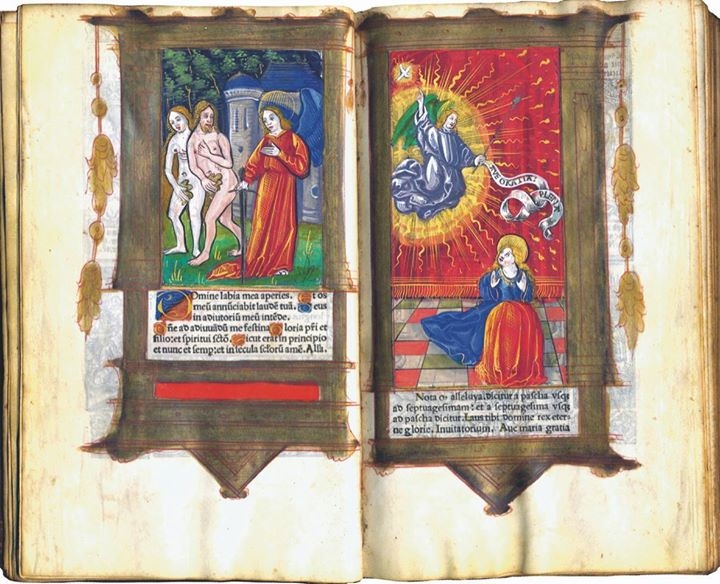 Domine labia mea aperies. Et os
meū annūciabit laudē tuā. Deus
in adiutoriū meū intēde.
Dñe ad adiuuādū me festina Gloria pr̄i et
filio: et spiritui sctō. Sicut erat in principio
et nunc et semp: et in secula sclorū amē. Alla.
GRATIA: PLENA
Nota ꝙ alleluya. dicitur a pascha vsqȝ
ad septuagesimam: et a septuagesima vsqȝ
ad pascha dicitur. Laus tibi domine rex eter-
ne glorie. Inuitatorium. Aue maria gratia